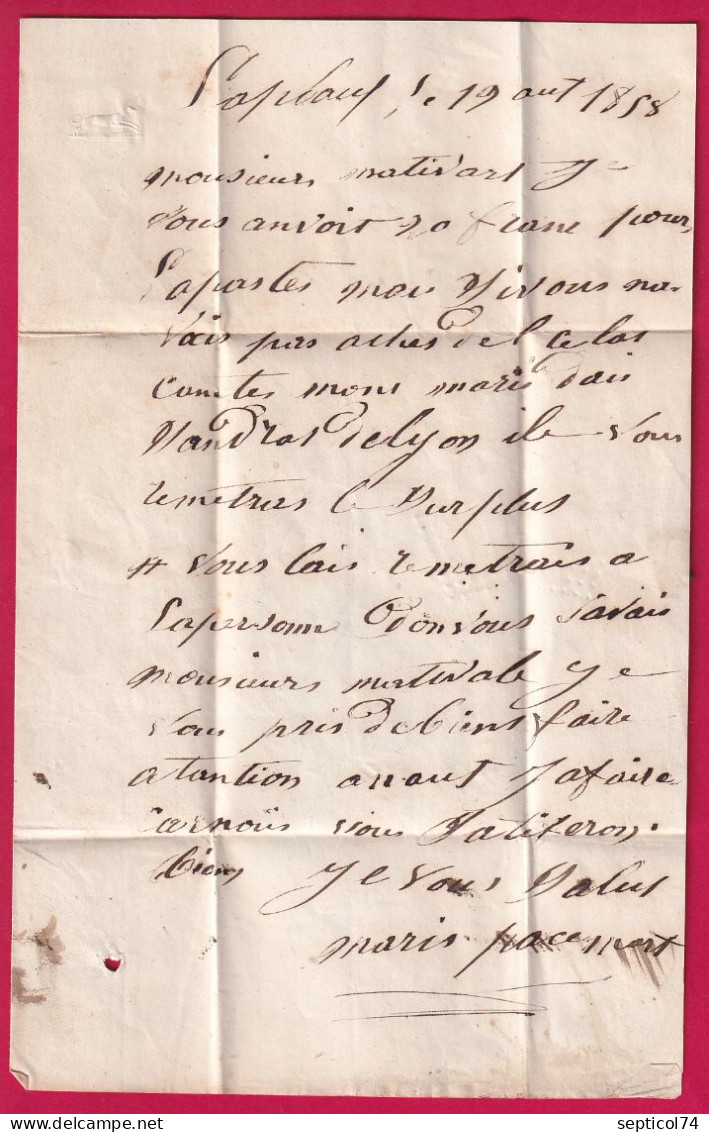 Lapleau, le 19 aut 1858
monsieurs mativart Je
vous anvoit 20 franc pour
Lapastes mais Si vous na
vais pas achesdel ce las
Comtes mons maris dais
Sandras delyon ile vous
remetras le Surplus
# vous lais remetrais a
Lapersonne don vous savais
monsieurs mativale Je
vous pris debiens faire
atantion anaut Jafaire
carnous vous Satiferons
biens Je vous Salut
maris pacemort
septicol74